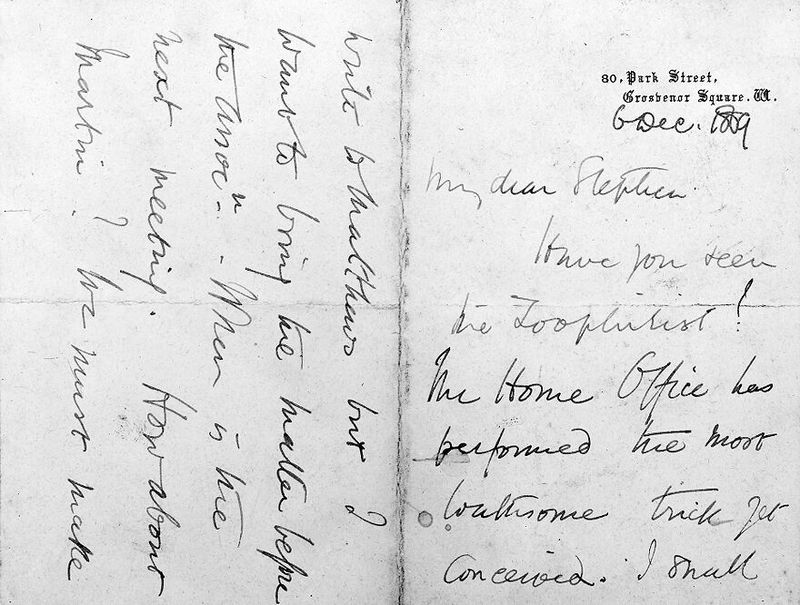 80, Park Street,
Grosvenor Square. W.
6 Dec. 1889
My dear Stephen
Have you seen
the Zoophilist!
The Home Office has
performed the most
loathsome trick yet
conceived. I shall
write to Matthews but I
want to bring the matter before
the Assocn. - When is the
next meeting. How about
Martin? We must make